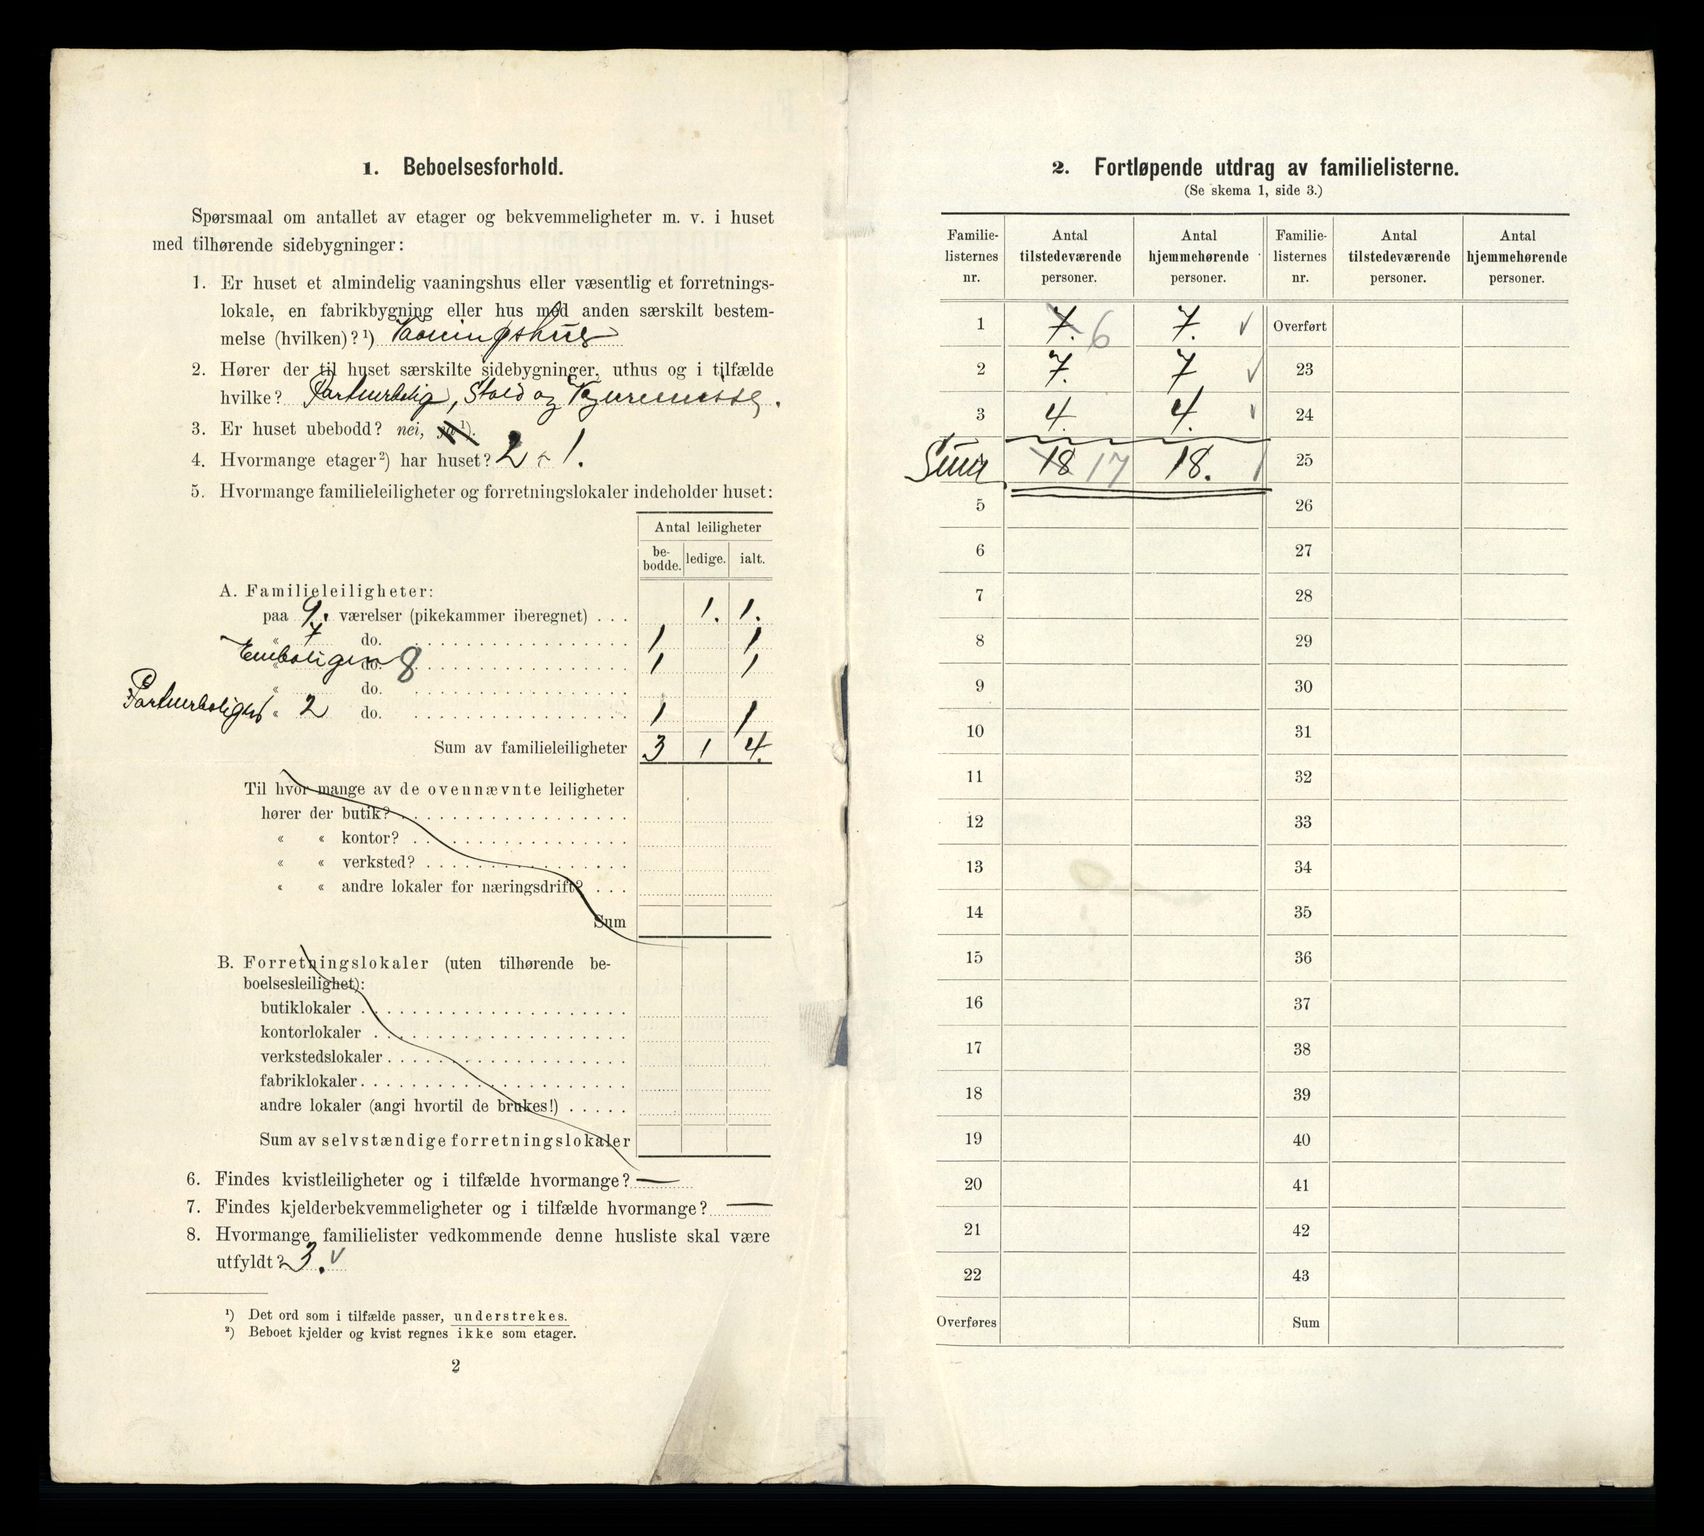 1. Beboelsesforhold.
Spørsmaal om antallet av etager og bekvemmeligheter m. v. i huset
med tilhørende sidebygninger:
1. Er huset et almindelig vaaningshus eller væsentlig et forretnings-
lokale, en fabrikbygning eller hus med anden særskilt bestem-
melse (hvilken)?¹) Vaaningshus
2. Hører der til huset særskilte sidebygninger, uthus og i tilfælde
hvilke? Portnerbolig, Stald og
3. Er huset ubebodd? nei, ja¹).
4. Hvormange etager²) har huset? 2 - 1.
5. Hvormange familieleiligheter og forretningslokaler indeholder huset:
Antal leiligheter
be-bodde. ledige. ialt.
A. Familieleiligheter:
paa 9. værelser (pikekammer iberegnet) . . . 1. 1.
« 7 do. 1 1
« do. 8 1 1
« do.
Portnerboligen « 2 do. 1 1
Sum av familieleiligheter 3 1 4.
Til hvor mange av de ovennævnte leiligheter
hører der butik?
« « kontor?
« « verksted?
« « andre lokaler for næringsdrift? . . .
Sum
B. Forretningslokaler (uten tilhørende be-
boelsesleilighet):
butiklokaler
kontorlokaler
verkstedslokaler
fabriklokaler
andre lokaler (angi hvortil de brukes!)
Sum av selvstændige forretningslokaler
6. Findes kvistleiligheter og i tilfælde hvormange? —
7. Findes kjelderbekvemmeligheter og i tilfælde hvormange? —
8. Hvormange familielister vedkommende denne husliste skal være
utfyldt? 3. v
¹) Det ord som i tilfælde passer, understrekes.
²) Beboet kjelder og kvist regnes ikke som etager.
2
2. Fortløpende utdrag av familielisterne.
(Se skema 1, side 3.)
Familie- Antal Antal Familie- Antal Antal
listernes tilstedeværende hjemmehørende listernes tilstedeværende hjemmehørende
nr. personer. personer. nr. personer. personer.
1 7. 6 7. v Overført
2 7. 7 v 23
3 4. 4. v 24
Sum 18 17 18. 25
5 26
6 27
7 28
8 29
9 30
10 31
11 32
12 33
13 34
14 35
15 36
16 37
17 38
18 39
19 40
20 41
21 42
22 43
Overføres Sum